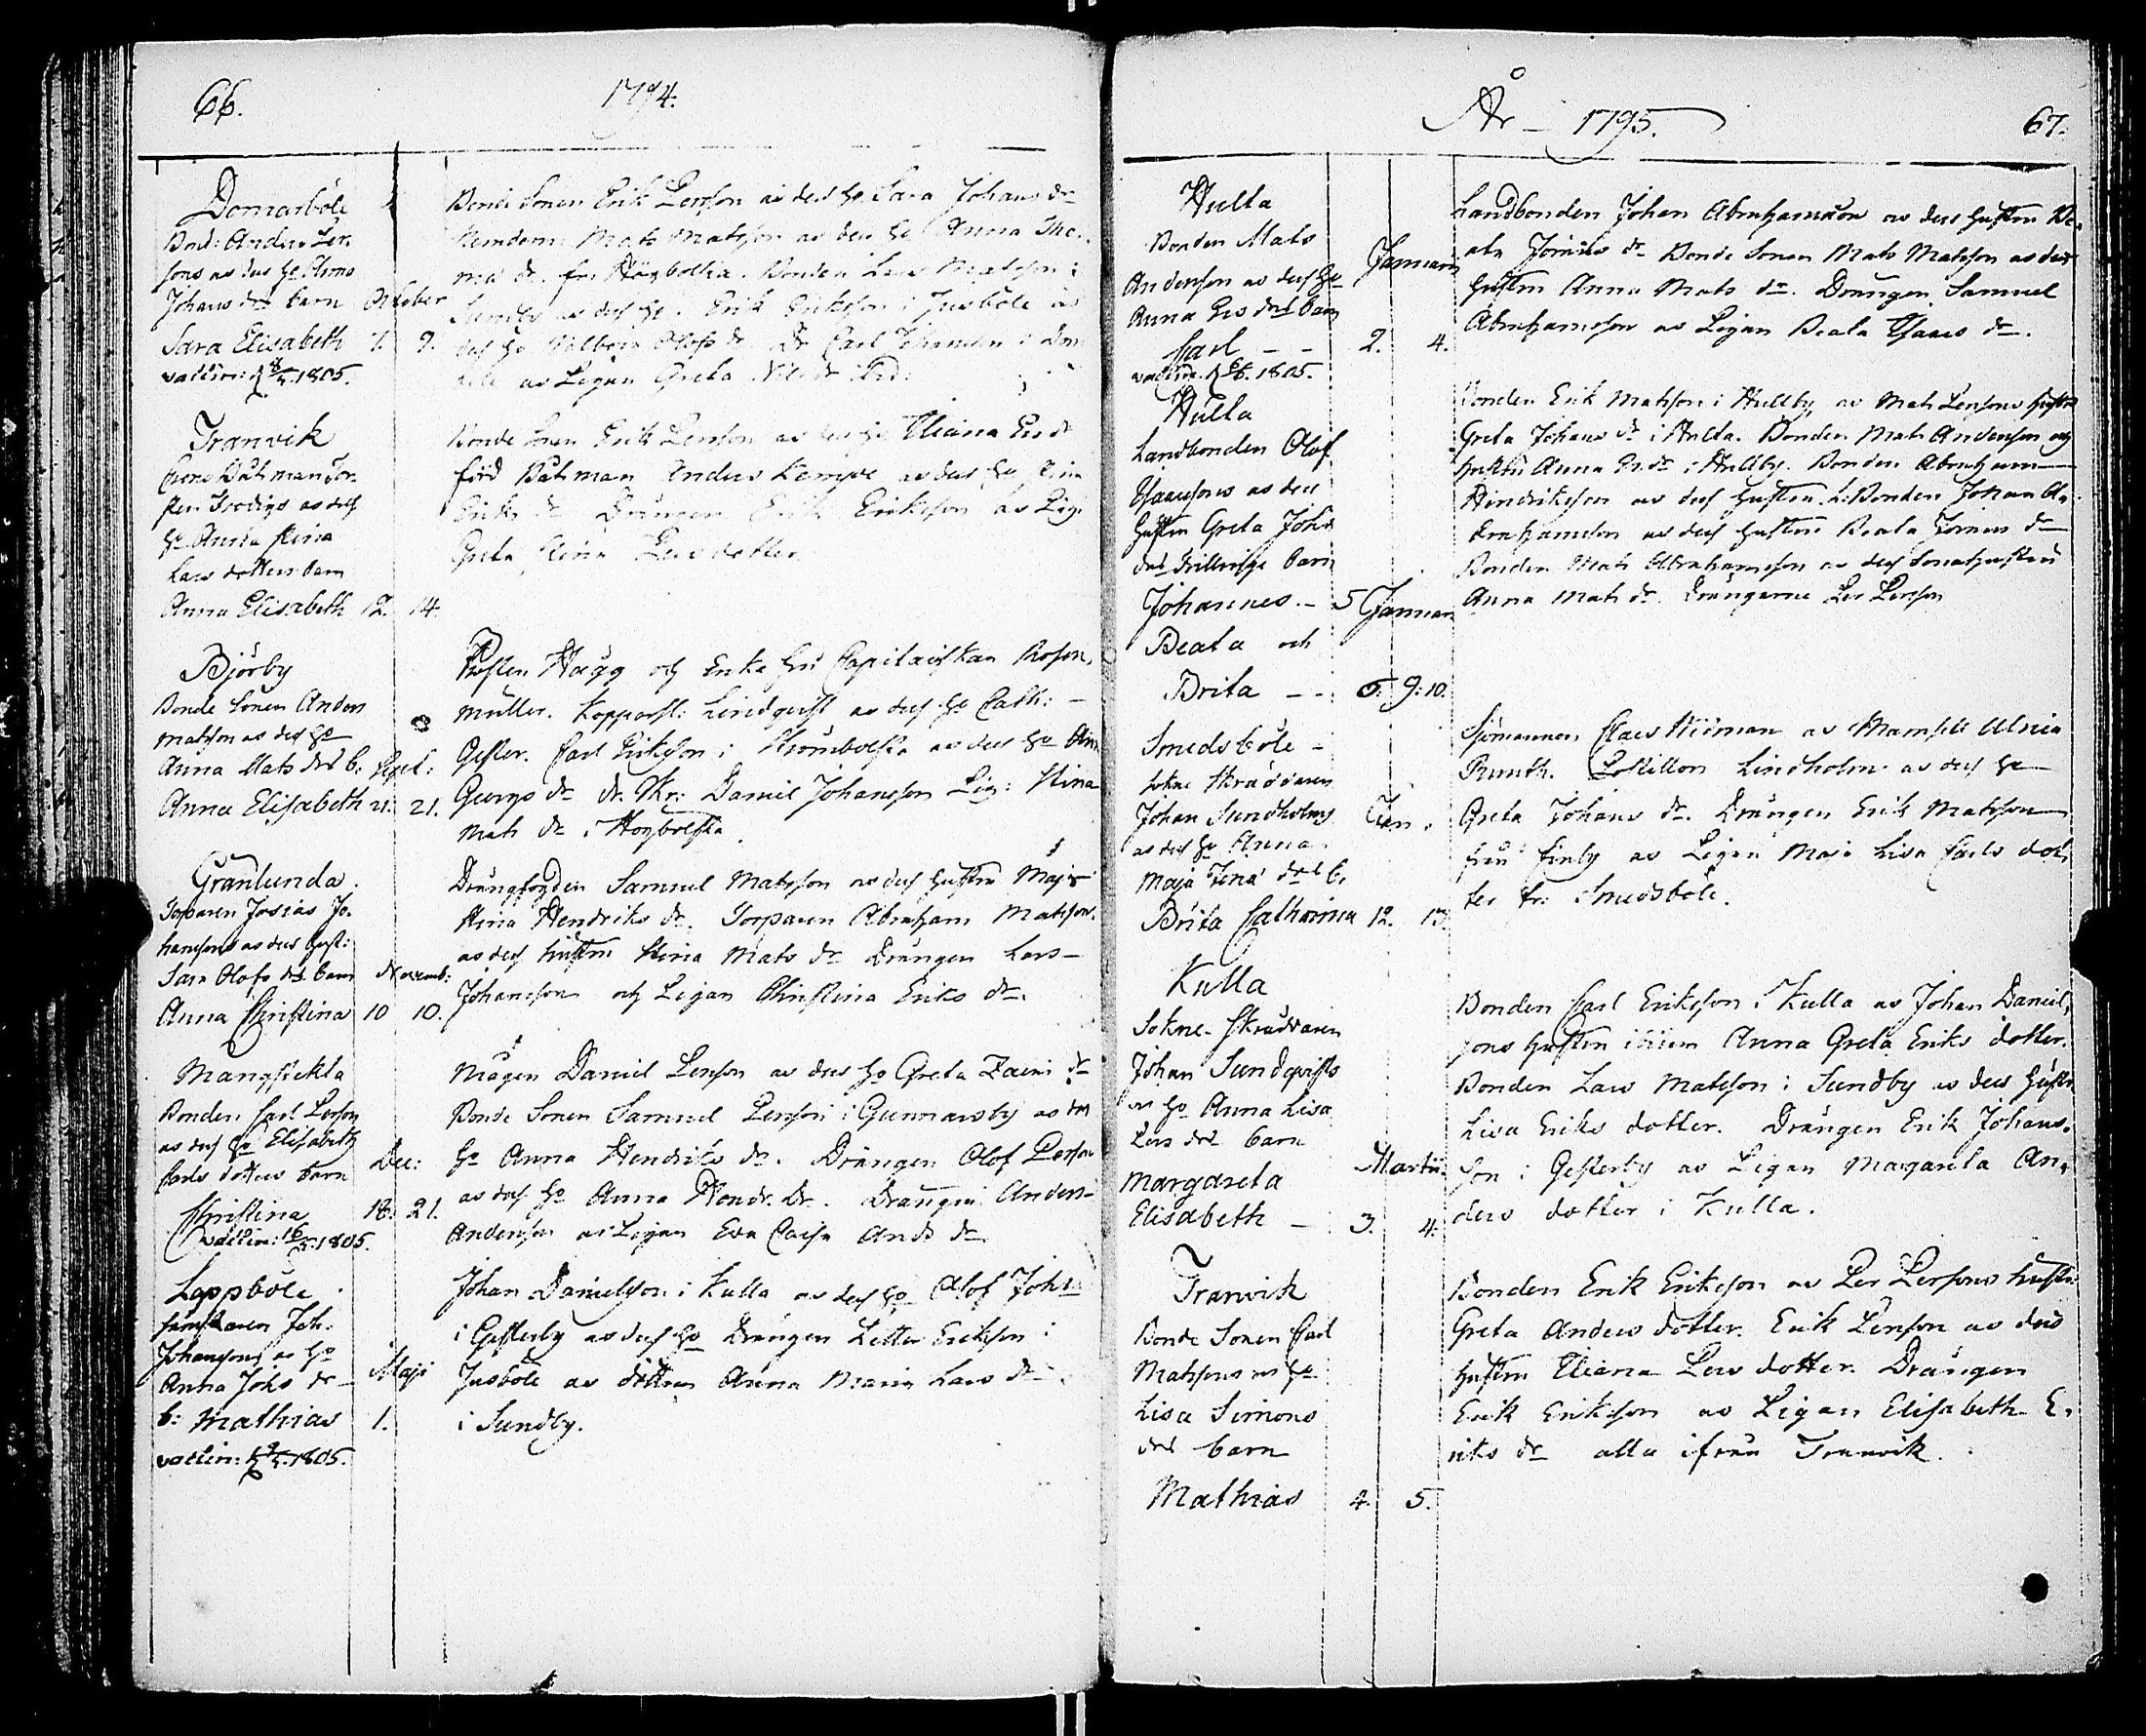 66.
1794.
Domarböle
Bond: Anders Per
sons as des ho
Johans dr barn October
Sara Elisabeth 7. 9.
vaccin: 1805.
Bonde Sonen Erik Persson as des ho Sara Johans dr
Mats Matsson as des ho Anna Tho-
mas dr fr: Högbolsta. Bonden Lars Matsson i
Sundby as des ho. Erik Eriksson i Jusböle as
des ho Olofs dr Dr Carl i Dom
böle as Pigan Greta
Tranvik
Crono Båtman Tor
sten as des
ho Anna Stina
Lars dotters barn
Anna Elisabeth 12. 14.
Bonde Sonen Erik Persson as des ho Eliana Ers dr
förd Båtman Anders Kempe as des ho Stina
Eriks dr Drängen Erik Eriksson as Pig.
Greta Stina Pers dotter
Björby
Bonde Sonen Anders
Matsson as des ho
Anna Mats drs b: Sept:
Anna Elisabeth 21. 21.
Hägg och Enke fru Capitaiskan Rosen,
müller. Kopparsl: Lindqvist as des ho Cath: -
Gester. Carl Eriksson i Strömbolsta as des ho An
Georgs dr dr. Kr: Daniel Johansson Pig: Stina
Mats dr i Hogbolsta.
Granlunda.
Torparen Josias Jo-
hanssons as des hust:
Sara Olofs drs barn Novemb:
Anna Christina 10 10.
Drängfogden Samuel Matsson as des hustru Maja
Stina Hendriks dr. Torparen Abraham Matsson.
as des hustru Stina Mats dr Drängen Lars -
Johansson och Pigan Christina Eriks dr.
Mangstekta
Bonden Carl Persson
as des ho Elisabeth
Carls dotters barn Dec:
Christina 18. 21.
vaccin: 16 1805.
Mågen Daniel Persson as des ho Greta dr
Bonde Sonen Samuel Persson i Gunnarsby as des
ho Anna Hendriks dr. Drängen Olof Persson
as des ho Anna Hendr. dr. Drängen Anders
Andersson as Pigan Eva Caisa Ands dr
Lappböle
Joh:
Johanssons as ho
Anna Johs dr - Maji
b: Mathias 1.
vaccin: 1805.
Johan Danielsson i Kulla as des ho Olof Johs:
i Gesterby as des ho Drängen Petter Eriksson i
Jusböle as dottren Anna Maria Lars dr
i Sundby.
År - 1795.
67.
Hulta
Bonden Mats
Andersson as des ho Januari
Anna Ers drs barn
Carl - - 2. 4.
vaccin. 1805.
Landbonden Johan Abrahamsson as des hustru Be-
ata dr Bonde Sonen Mats Matsson as des
hustru Anna Mats dr. Drängen Samuel
Abrahamsson as Pigan Beata Isaacs dr.
Hulta
Landbonden Olof
Isaacsons as des
hustru Greta Johs
drs trillinge barn
Johannes. - 5 Januari
Beata och
Brita - - 6. 9: 10.
Bonden Erik Matsson i Hullby as Mats Perssons hustru
Greta Johans dr i Hulta. Bonden Mats Andersson och
hustru Anna Ers dr i Hullby. Bonden Abraham
Hindriksson as des hustru. L: Bonden Johan A-
brahamsson as des hustru Beata dr
Bonden Mats Abrahamsson as des sonahustru
Anna Mats dr. Drängarne Per Persson
Smedsböle -
Sokne Skräddaren
Johan Sundholms Jan.
as des ho Anna
Maja drs b.
Brita Catharina 12. 13.
Sjömannen Claes as Mamsell Ulrica
Runth. Postillon Lindholm as des ho
Greta Johans dr. Drängen Erik Matsson
från Finby as Pigan Maja Lisa Carls dot-
ter fr: Smedsböle.
Kulla
Sokne-Skräddaren
Johan Sundqvists
as ho Anna Lisa
Pers drs barn
Margareta Martii
Elisabeth - 3. 4.
Bonden Carl Eriksson i Kulla as Johan Daniel-
sons hustru Anna Greta Eriks dotter.
Bonden Lars Matsson i Sundby as des hustru
Lisa Eriks dotter. Drängen Erik Johans-
son i Gesterby as Pigan Margareta An-
ders dotter i Kulla.
Tranvik
Bonde Sonen Carl
Matssons as ho
Lisa Simons
drs barn
Mathias 4. 5.
Bonden Erik Eriksson as Per Perssons hustru
Greta Anders dotter. Erik Persson as des
hustru Eliana Pers dotter. Drängen
Erik Eriksson as Pigan Elisabeth E-
riks dr alla ifrån Tranvik.